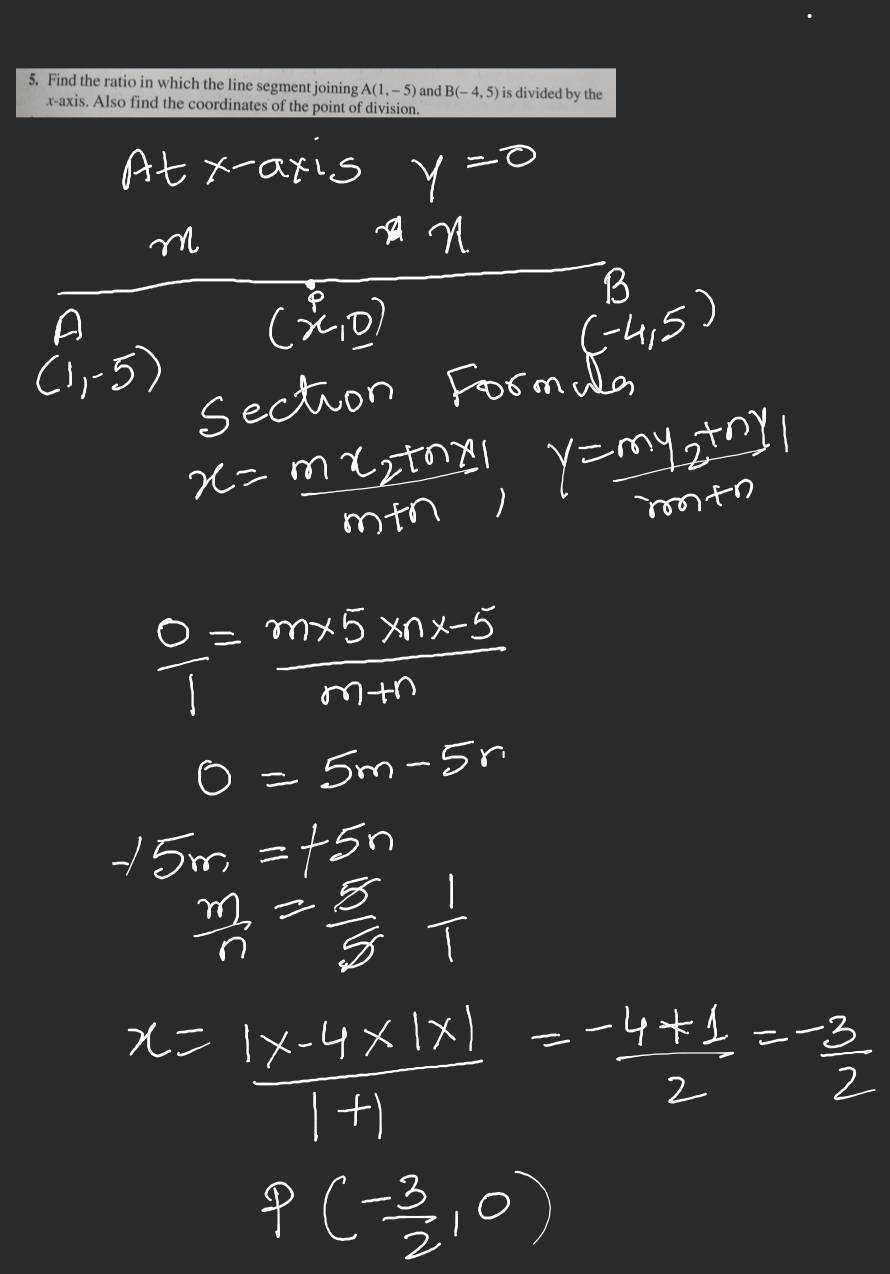 5. Find the ratio in which the line segment joining A(1, – 5) and B(– 4, 5) is divided by the
x-axis. Also find the coordinates of the point of division.
At x-axis y = 0
m n
A P B
(1,-5) (x,0) (-4,5)
Section Formula
x = mx₂+nx₁/m+n , y = my₂+ny₁/m+n
0/1 = m×5 ×n×-5/m+n
0 = 5m - 5n
+5m = +5n
m/n = 5/5 1/1
x = 1×-4×1×1/1+1 = -4+1/2 = -3/2
P(-3/2, 0)